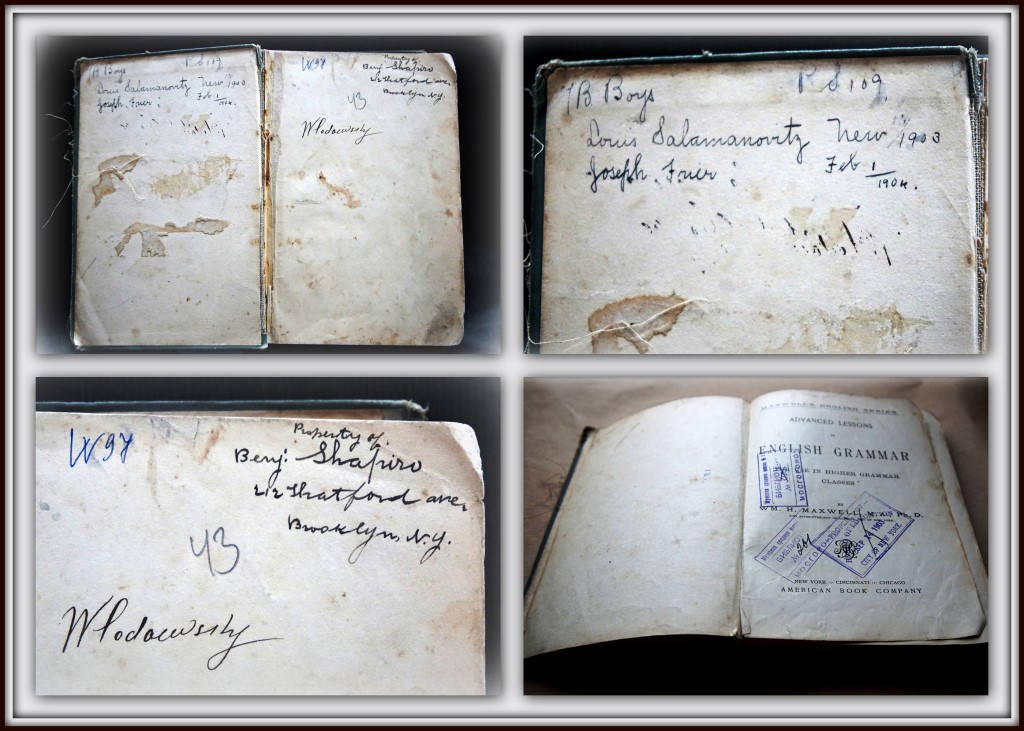 7B Boys P S 109.
Louis Salamanovitz New 1903
Joseph. Feb 1
1904.
W97
Property of.
Benj. Shapiro
Thatford ave,
Brooklyn, N.Y.
43
Wlodawsky
7B Boys
P S 109.
Louis Salamanovitz New 1903
Joseph. Feb 1
1904.
W97
Property of.
Benj: Shapiro
212 Thatford ave,
Brooklyn, N.Y.
43
Wlodawsky
MAXWELL'S ENGLISH SERIES
ADVANCED LESSONS
IN
ENGLISH GRAMMAR
FOR USE IN HIGHER GRAMMAR
CLASSES
BY
WM. H. MAXWELL, M.A., Ph.D.
МОСГОРОНО
CITY OF NEW YORK
NEW YORK · CINCINNATI · CHICAGO
AMERICAN BOOK COMPANY